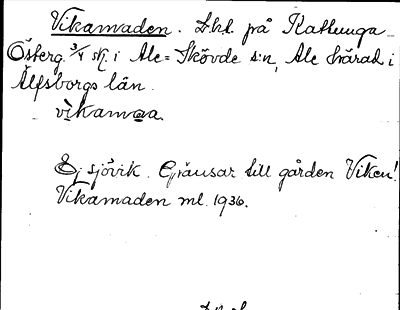 Vikamaden. Lht. på Kattunga
Österg. 3/4 sk. i Ale=Skövde s:n, Ale härad i
Älfsborgs län.
vikamaa.
Ej sjövik. Gränsar till gården Viken!
Vikamaden ml. 1936.